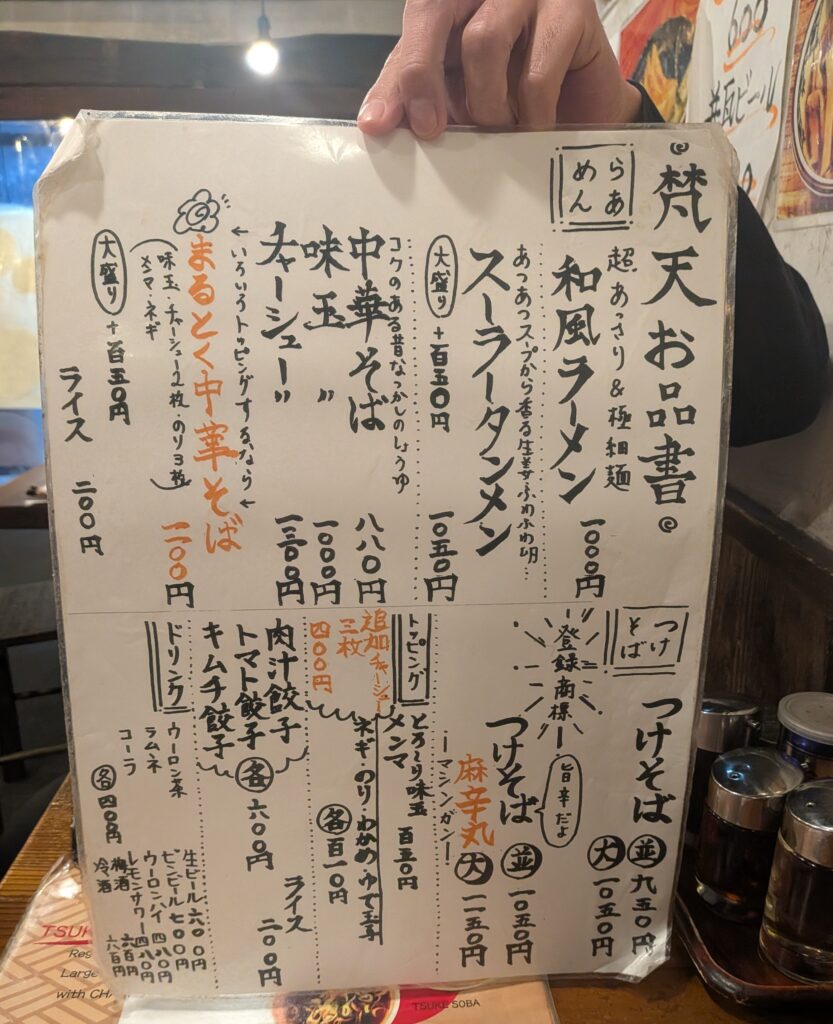 梵天お品書
らあめん
超あっさり&極細麺
和風ラーメン 一〇〇〇円
あつあつスープから香る生姜ふわふわ卵…
スーラータンメン 一〇五〇円
大盛り+百五〇円
コクのある昔なつかしのしょうゆ
中華そば 八八〇円
味玉〃 一〇〇〇円
チャーシュー〃 一三〇〇円
←いろいろトッピングするなら←
まるとく中華そば 一二〇〇円
(味玉・チャーシュー2枚・のり3枚
メンマ・ネギ)
大盛り+百五〇円
ライス 二〇〇円
つけそば
つけそば 並 九五〇円
大 一〇五〇円
登録商標
旨辛だよ
つけそば 並 一〇五〇円
麻辛丸 大 一一五〇円
ーマシンガンー
トッピング
とろ〜り味玉 百五〇円
メンマ
ネギ・のり・わかめ・ゆで玉子
各 百一〇円
追加チャーシュー
三枚
四〇〇円
肉汁餃子
トマト餃子 各 六〇〇円
キムチ餃子
ライス 二〇〇円
ドリンク
ウーロン茶
ラムネ
コーラ
各 四〇〇円
生ビール 六〇〇円
ビンビール 七〇〇円
ウーロンハイ 四八〇円
レモンサワー 四八〇円
梅酒 六百円
冷酒 六百円
600
瓶ビール
TSUKE
Large
with CHA
TSUKE SOBA